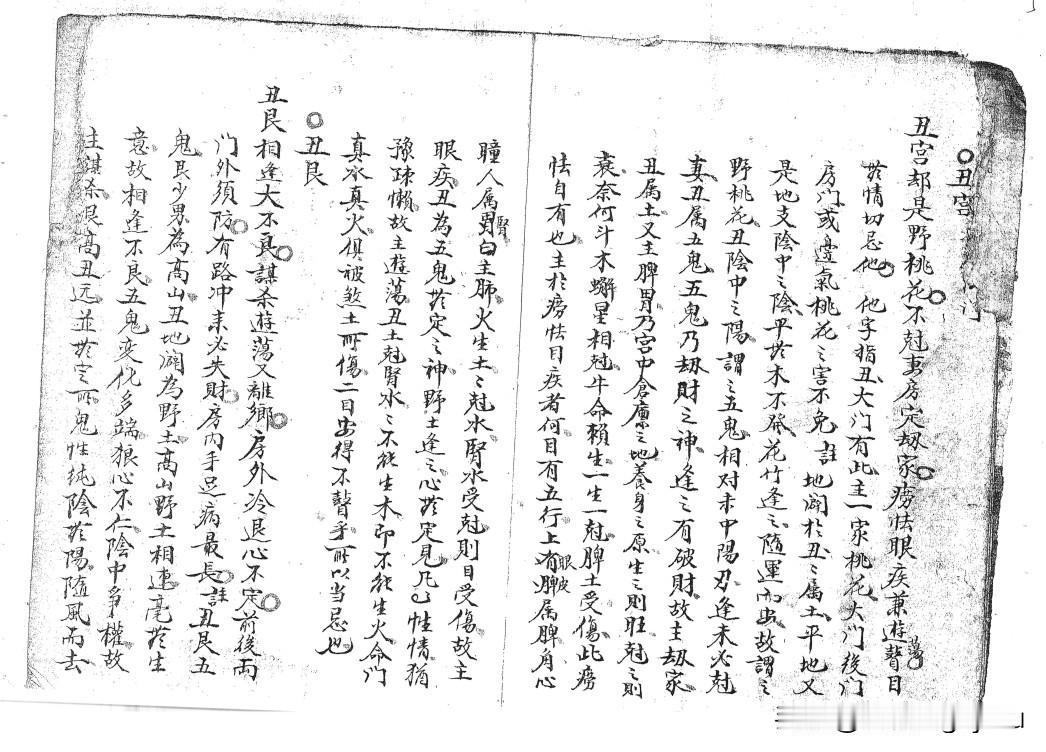 丑宫
丑宫却是野桃花不尅妻房定刼家痨怯眼疾兼遊蕩瞽目
扵情切忌他　他字指丑大门有此主一家桃花大门後门
房门或邊氣桃花之害不免註地闢扵丑〻属土平地又
是地支陰中之陰平扵木不發花竹逢之隨運而出故謂之
野桃花丑陰中之陽謂之五鬼相对未中陽刃逢未必尅
妻丑属五鬼五鬼乃刼財之神逢之有破財故主刼家
丑属土又主脾胃乃宫中倉廪之地養身之原生之則旺尅之則
衰奈何斗木獬星相尅牛命賴生一生一尅脾土受傷此痨
怯自有也主扵痨怯目疾者何目有五行上有眼皮属脾角心
瞳人属腎白主肺火生土〻尅水腎水受尅則目受傷故主
眼疾丑為五鬼扵定之神野土逢之心扵定見乃巳性情猶
豫疎懶故主遊蕩丑土尅腎水〻不能生木即不能生火命门
真水真火俱被煞土所傷二目安得不瞽乎所以当忌也
丑艮
丑艮相逢大不良謀杀遊蕩又離鄉房外冷退心不定前後両
门外須防有路冲来必失財房内手足病最長註丑艮五
鬼艮少男為高山丑地闢為野土高山野土相連毫扵生
意故相逢不良五鬼变化多端狠心不仁陰中争權故
主謀杀艮高丑远並扵定所鬼性純陰扵陽随風而去